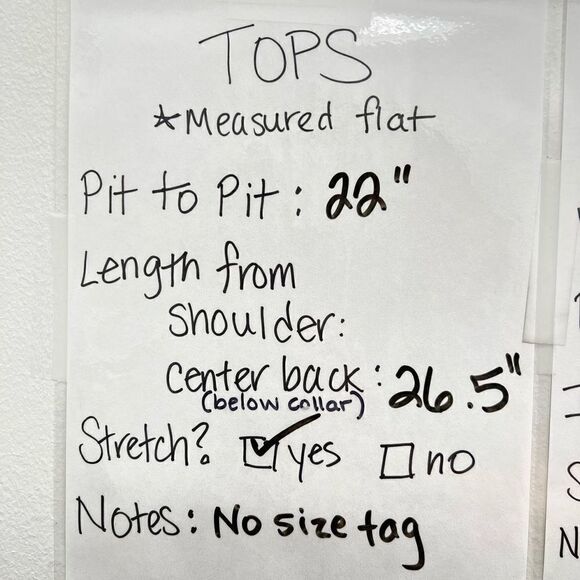 TOPS
*Measured flat
Pit to Pit: 22"
Length from
Shoulder:
Center back: 26.5"
(below collar)
Stretch? ☑ yes ☐ no
Notes: No size tag